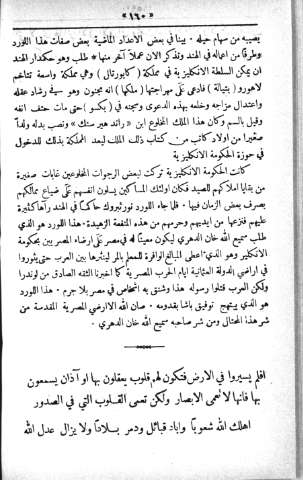 ﴿١٦٠﴾
يصيبه من سهام حيله . بينا في بعض الاعداد الماضية بعض صفات هذا اللورد
وطرفا من اعماله في الهند ونذكر الان عملاً آخر منها * طلب وهو حكمدار الهند
ان يمكن السلطة الانكليزية في مملكة (كابورتال) وهي مملكة واسعة تتاخم
لاهورو (بتيالة) فادعى على مهراجتها (ملكها) انه مجنون وهو سيـف رشاد عقله
واعتدال مزاجه وخلعه بهذه الدعوى وسجنه في (بكسو) حتى مات حتف انفه
وقيل بالسم وكان هذا الملك المخلوع ابن « راند هير سنك » ونصب بدله ولداً
صغيرا من اولاد كاتب من كتاب ذلك الملك ليعد المملكة بذلك للدخول
في حوزة الحكومة الانكليزية
كانت الحكومة الانكليزية تركت لبعض الرجوات المخلوعين غابات صغيرة
من بقايا املاكهم للصيد فكان اولئك المساكين يسلون انفسهم على ضياع ممالكهم
بصرف بعض الزمان فيها . فلما جاء اللورد نورثبروك حاكما في الهند رآها كثيرة
عليهم فنزعها من ايديهم وحرمهم من هذه المنفعة الزهيدة . هذا اللورد هو الذي
طلب سميع الله خان الدهري ليكون معيناً له في مصر على ارضاء المصريين بحكومة
الانكليز وهو الذي اعطى المبالغ الوافرة للمعلم بالمر لينثرها بين العرب حتى يثوروا
في اراضي الدولة العثمانية ايام الحرب المصرية كما اخبرنا الثقه الصادق من لوندرا
ولكن العرب قتلوا رسوله هذا وشنق به اشخاص في مصر بلا جرم . هذا اللورد
هو الذي يبتهج توفيق باشا بقدومه . صان الله الاراضي المصرية المقدسة من
شر هذا المحتال ومن شر صاحبه سميع الله خان الدهري
افلم يسيروا في الارض فتكون لهم قلوب يعقلون بها او آذان يسمعون
بها فانها لا تعمى الابصار ولكن تعمى القلوب التي في الصدور
اهلك الله شعوباً واباد قبائل ودمر بلاداً ولا يزال عدل الله